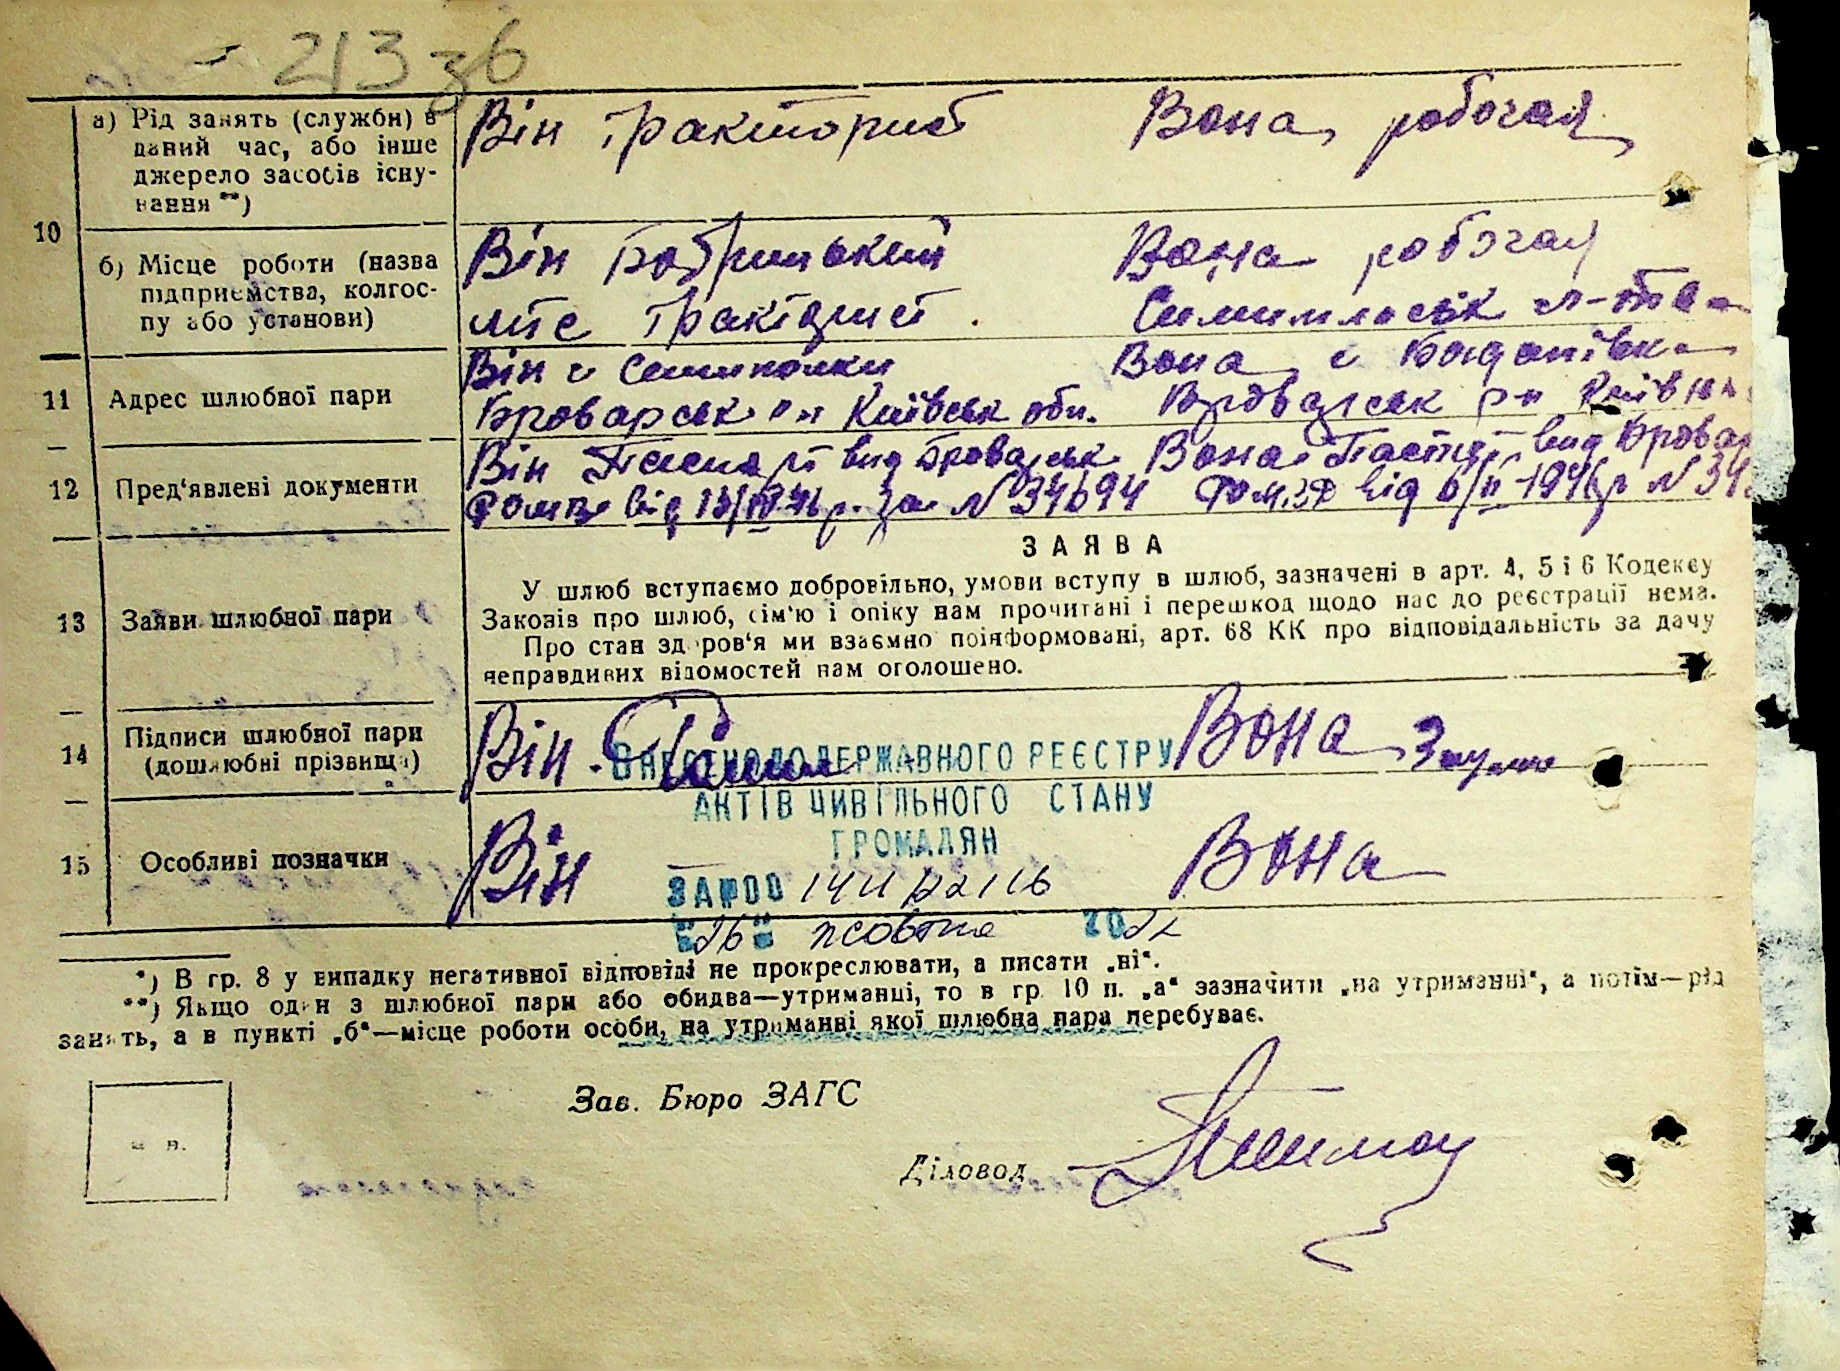 213 зб
а) Рід занять (служби) в
даний час, або інше
джерело засобів існу-
вання**)
Він тракторист Вона робочая
10
б) Місце роботи (назва
підприємства, колгос-
пу або установи)
Він Бобрицький Вона робочая
мтс тракторист
11 Адрес шлюбної пари
Він с Семиполки Вона с Богданівка
Броварськ р-н Київськ обл. Броварськ р-н Київськ
12 Пред'явлені документи
Він Паспорт вид Броварськ Вона Паспорт вид Бровар
від 13/IV 46 р. за № 34694 від 6/II-1946 р №
ЗАЯВА
13 Заяви шлюбної пари
У шлюб вступаємо добровільно, умови вступу в шлюб, зазначені в арт. 4, 5 і 6 Кодексу
Законів про шлюб, сім'ю і опіку нам прочитані і перешкод щодо нас до реєстрації нема.
Про стан здоров'я ми взаємно поінформовані, арт. 68 КК про відповідальність за дачу
неправдивих відомостей нам оголошено.
14 Підписи шлюбної пари
(дошлюбні прізвища)
Він Вона
ВНЕСЕНО ДО ДЕРЖАВНОГО РЕЄСТРУ
АКТІВ ЦИВІЛЬНОГО СТАНУ
ГРОМАДЯН
15 Особливі позначки
Він Вона
ЗА №00
"26" жовтня 20
*) В гр. 8 у випадку негативної відповіді не прокреслювати, а писати „ні“.
**) Якщо один з шлюбної пари або обидва—утриманці, то в гр. 10 п. „а“ зазначити „на утриманні“, а потім—рід
занять, а в пункті „б“—місце роботи особи, на утриманні якої шлюбна пара перебуває.
Зав. Бюро ЗАГС
м. п.
Діловод